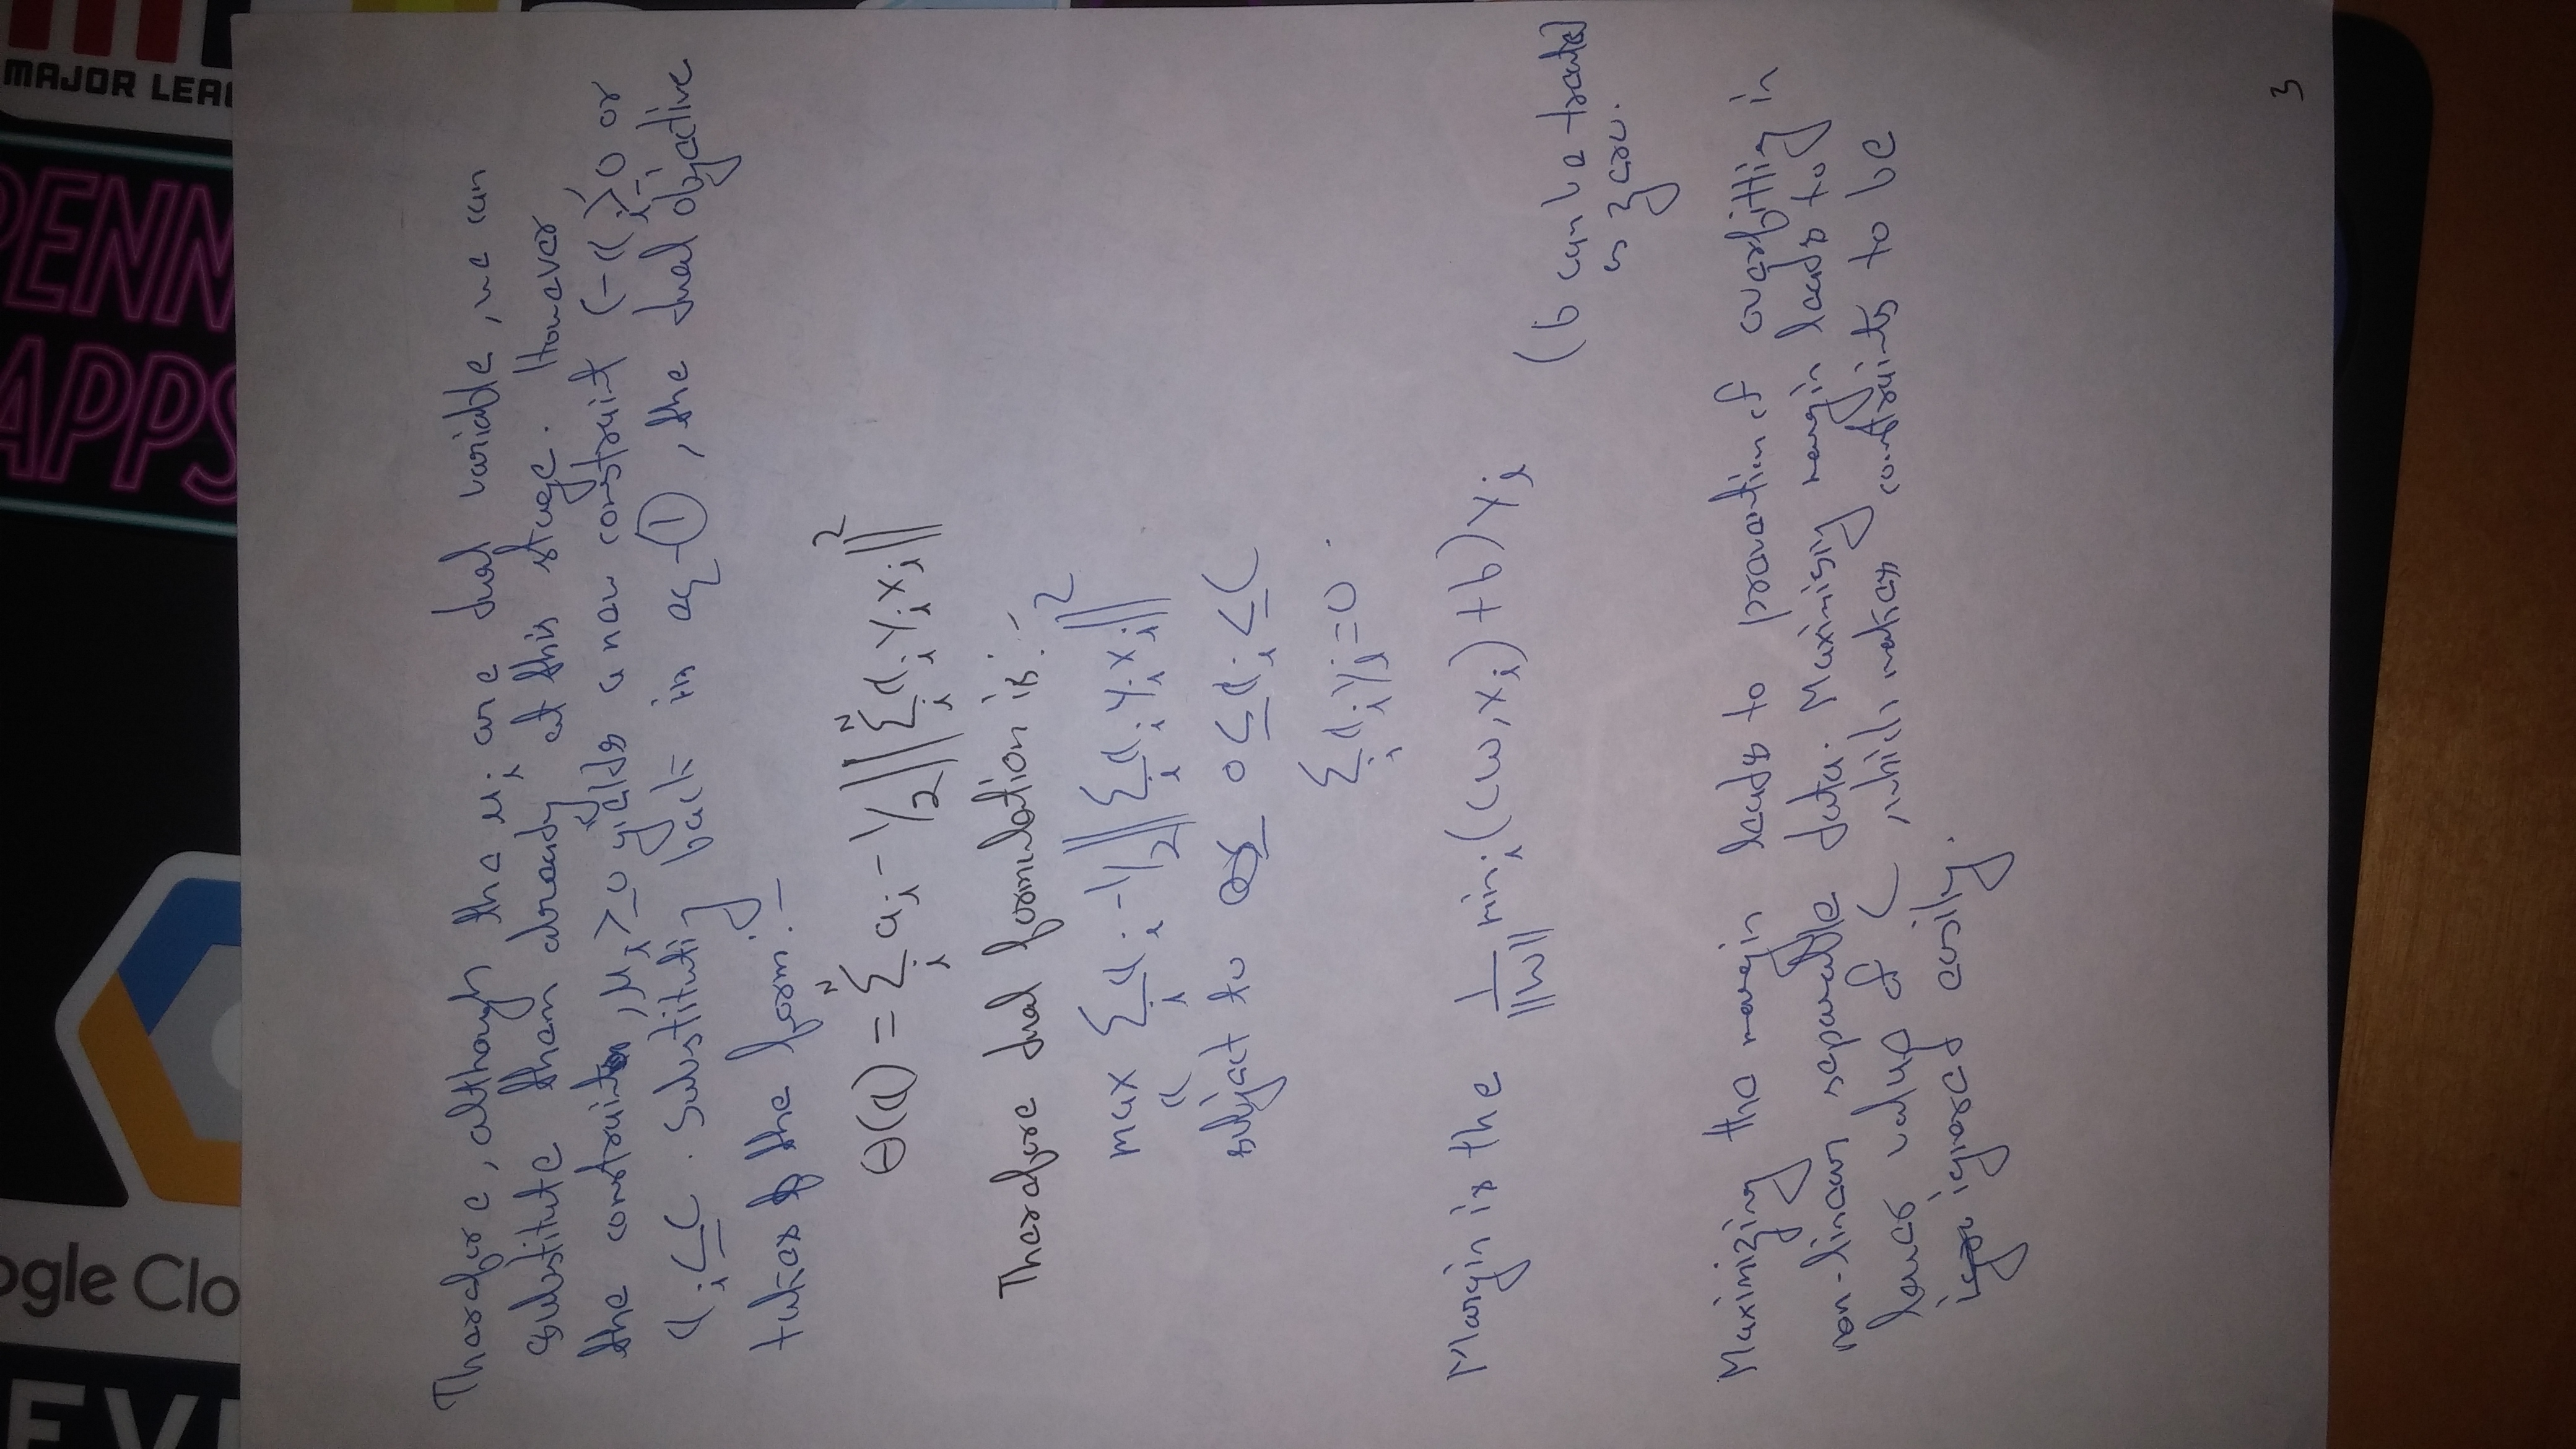 EV
ogle Clo
PENN
APPS
MAJOR LEA
Therefore, although the μi are dual variable, we can
substitute them already at this stage. However,
the constraints, μi ≥ 0 yields a new constraint C-αi ≥ 0 or
αi ≤ C. Substituting back in eq-①, the dual objective
takes the form:-
Θ(α) = Σ_i^N ai - 1/2 ||Σ_i^N αi yi xi||²
Therefore dual formulation is:-
max_α Σ_i αi - 1/2 ||Σ_i αi yi xi||²
subject to 0 ≤ αi ≤ C
Σ_i αi yi = 0.
Margin is the 1/||w|| min_i (<w, xi) + b) yi
(b can be treated
as zero.
Maximizing the margin leads to prevention of overfitting in
non-linear separable data. Maximising margin leads to
lower value of C, which makes constraints to be
ignored easily.
3